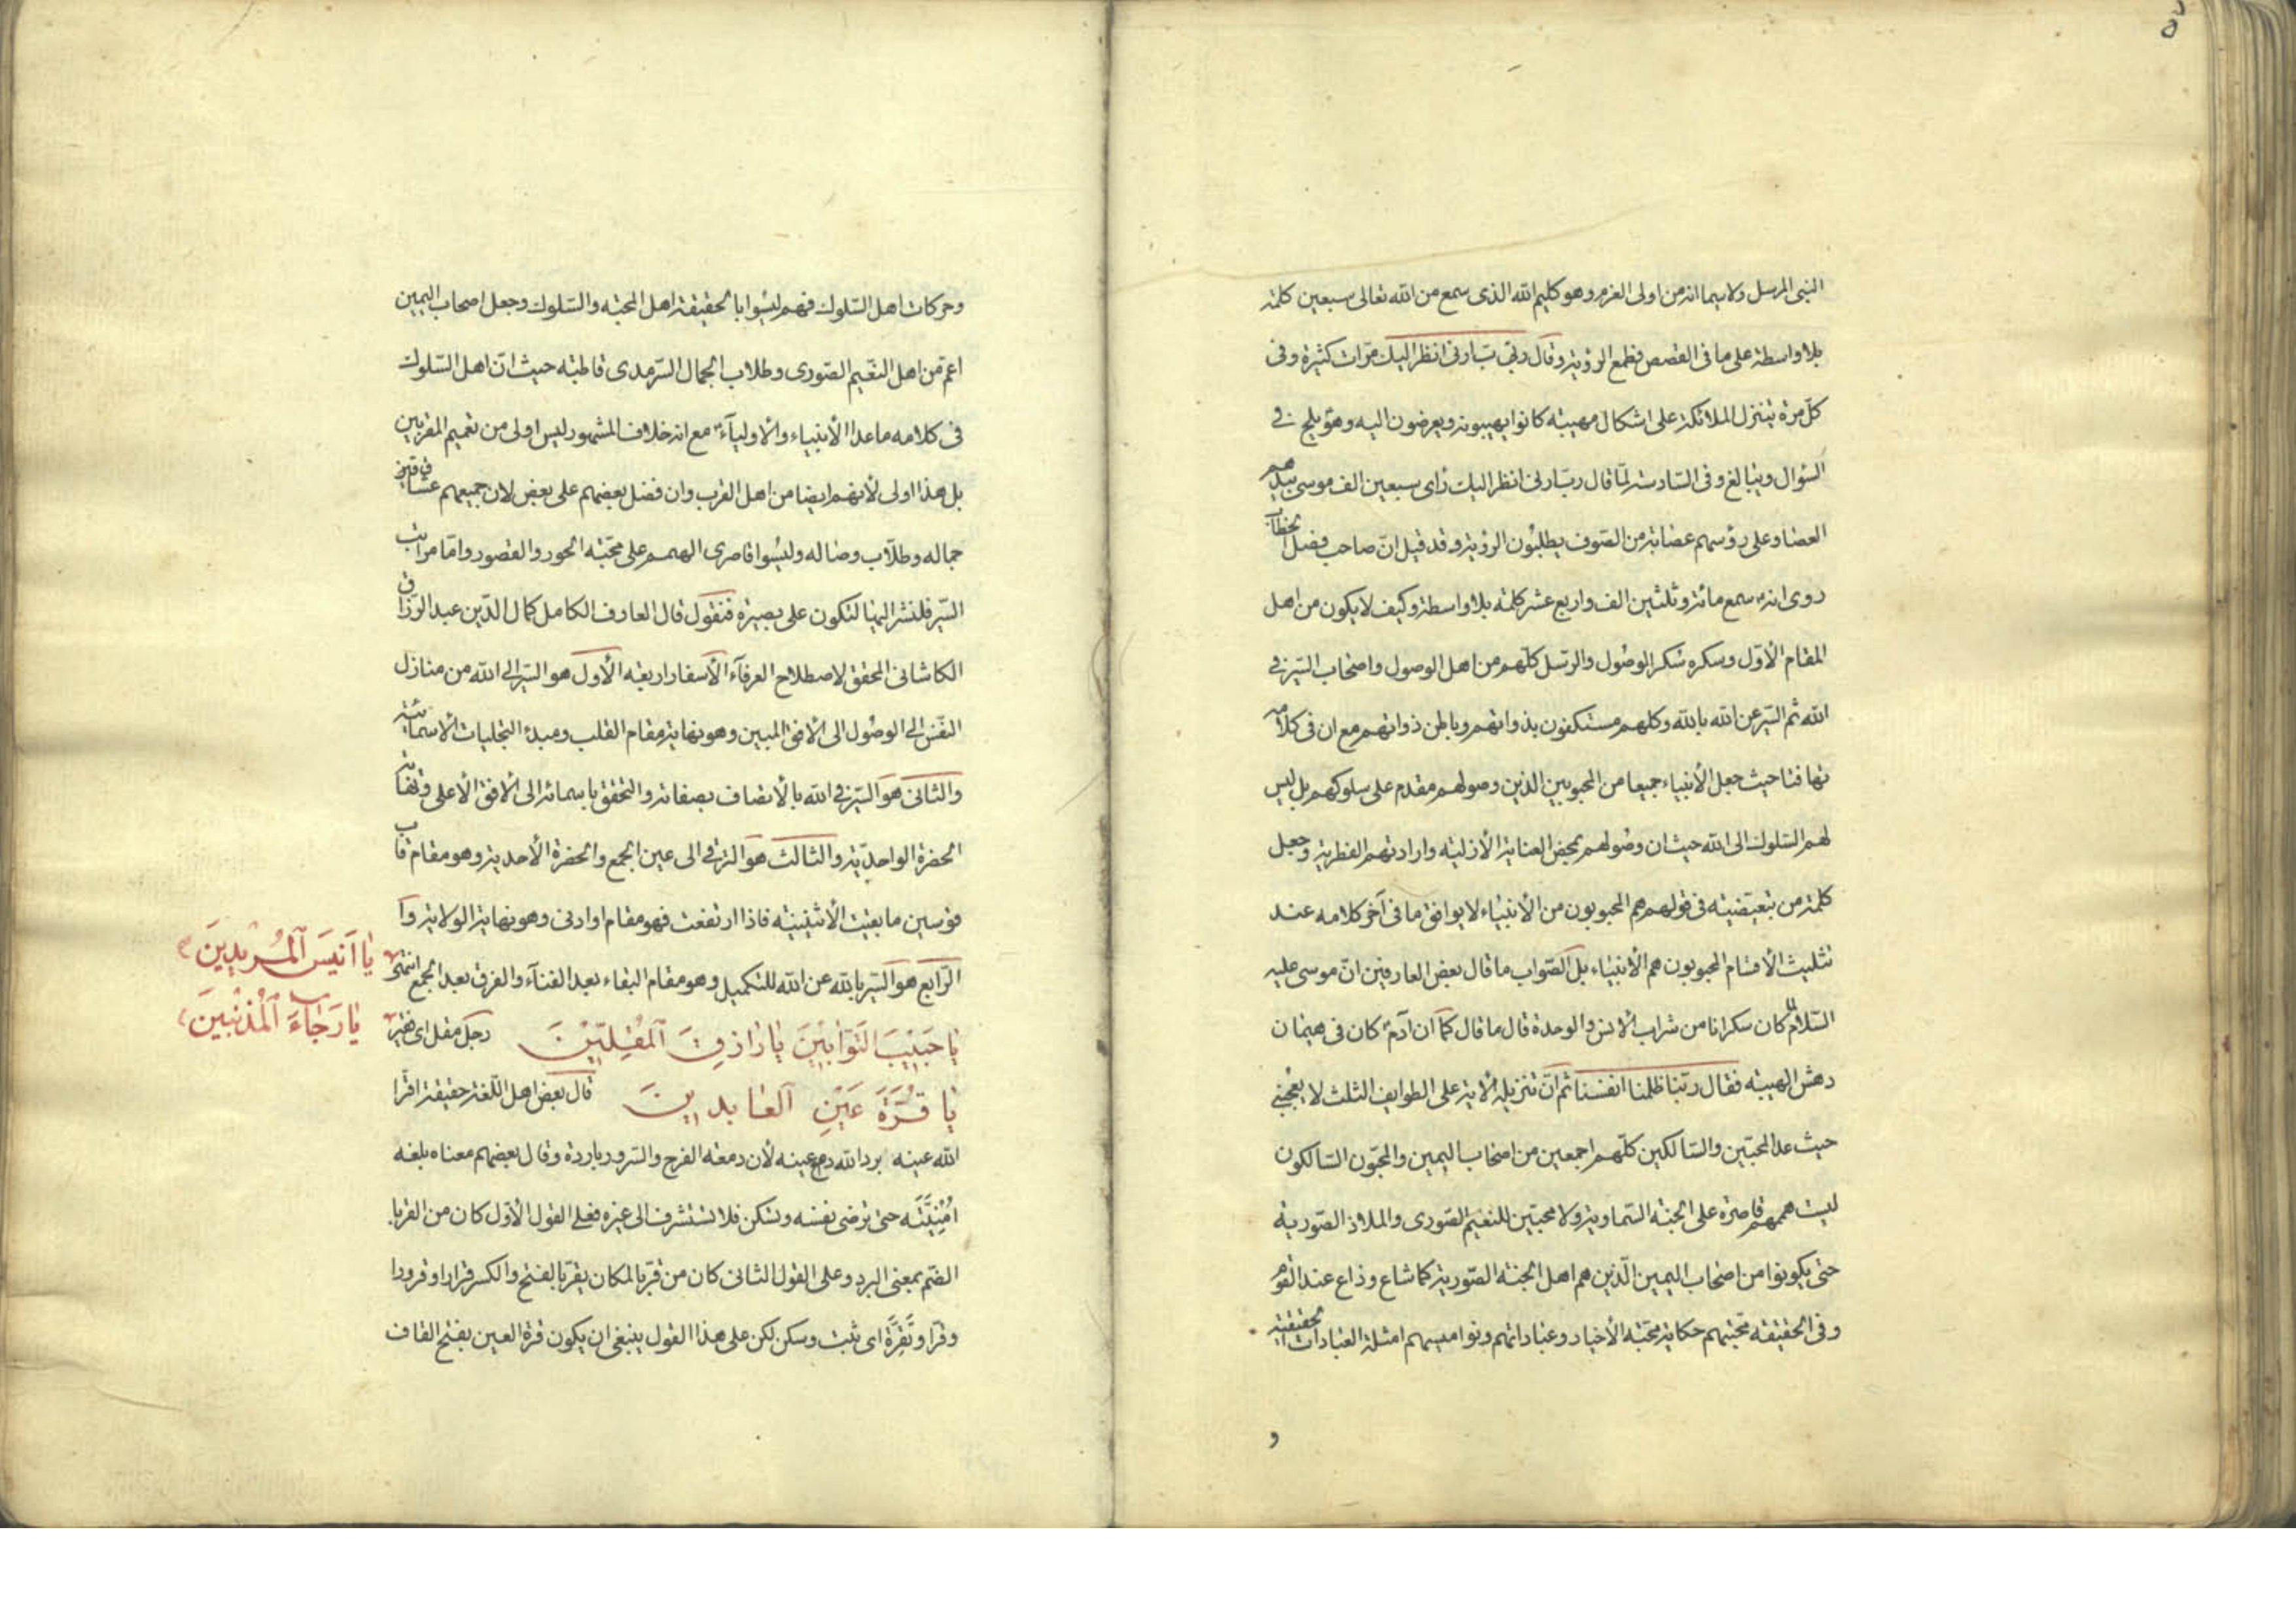 النبى المرسل ولا سيما انه من اولى العزم وهو كليم الله الذى سمع من الله تعالى سبعين كلمة
بلا واسطة على ما فى القصص فطمع الرؤية وقال رب ارنى انظر اليك مرات كثيرة وفى
كل مرة يتنزل الملائكة على اشكال مهيبة كانوا يهيبونه ويعرضون اليه وهو يلح فى
السؤال ويبالغ وفى السادسة لما قال رب ارنى انظر اليك رأى سبعين الف موسى بيدهم
العصا وعلى رؤسهم عصابة من الصوف يطلبون الرؤية وقد قيل ان صاحب فصل الخطاب
روى انه سمع مائة وثلثين الف واربع عشر كلمة بلا واسطة وكيف لا يكون من اهل
المقام الاول وسكره سكر الوصول والرسل كلهم من اهل الوصول واصحاب السير فى
الله ثم السير عن الله بالله وكلهم مستكفون بذواتهم وباطن ذواتهم مع ان فى كلامه
تهافتا حيث جعل الأنبياء جميعا من المحبوبين الذين وصولهم مقدم على سلوكهم بل ليس
لهم السلوك الى الله حيث ان وصولهم بمحض العناية الأزلية وارادتهم الفطرية وجعل
كلمة من تبعيضية فى قولهم هم المحبوبون من الأنبياء لا يوافق ما فى آخر كلامه عند
تثليث الأقسام المحبوبون هم الأنبياء بل الصواب ما قال بعض العارفين ان موسى عليه
السلام كان سكرانا من شراب الأنس والوحدة قال ما قال كما ان آدم كان فى هيمان
دهش الهيبة فقال ربنا ظلمنا انفسنا ثم ان تنزيله الأية على الطوايف الثلث لا يعجبنى
حيث عد المحبين والسالكين كلهم اجمعين من اصحاب اليمين والمحبون السالكون
ليست هممهم قاصرة على الجنة السماوية ولا محبين للنعيم الصورى والملاذ الصورية
حتى يكونوا من اصحاب اليمين الذين هم اهل الجنة الصورية كما شاع وذاع عند القوم
وفى الحقيقة محبتهم حكاية محبة الأخيار وعباداتهم ونواميسهم امثلة العبادات الحقيقية
و
وحركات اهل السلوك فهم ليسوا بالحقيقة اهل المحبة والسلوك وجعل اصحاب اليمين
اعم من اهل النعيم الصورى وطلاب الجمال السرمدى قاطبة حيث ان اهل السلوك
فى كلامه ما عدا الأنبياء والأولياء مع انه خلاف المشهور ليس اولى من تعميم المقربين
بل هذا اولى لأنهم ايضا من اهل القرب وان فضل بعضهم على بعض لان جميعهم عشاق
جماله وطلاب وصاله وليسوا قاصرى الهمم على محبة الحور والقصور واما مراتب
السير فلنشر اليها لتكون على بصيرة فنقول قال العارف الكامل كمال الدين عبد الرزاق
الكاشانى المحقق لاصطلاح العرفاء الأسفار اربعة الأول هو السير الى الله من منازل
النفس الى الوصول الى الأفق المبين وهو نهاية مقام القلب ومبدء التجليات الأسمائية
والثانى هو السير فى الله بالأتصاف بصفاته والتحقق باسمائه الى الأفق الأعلى ونهاية
الحضرة الواحدية والثالث هو الترقى الى عين الجمع والحضرة الأحدية وهو مقام قاب
قوسين ما بقيت الأثنينية فاذا ارتفعت فهو مقام او ادنى وهو نهاية الولاية و
الرابع هو السير بالله عن الله للتكميل وهو مقام البقاء بعد الفناء والفرق بعد الجمع انتهى
يَا اَنِيسَ ٱلْمُرِيدِينَ
يَا حَبِيبَ التَّوَّابِينَ يَا رَازِقَ ٱلْمُقِلِّينَ رجل مقل اى فقير
يَا رَجَاءَ ٱلْمُذْنِبِينَ
يَا قُرَّةَ عَيْنِ ٱلْعَابِدِينَ قال بعض اهل اللغة حقيقة اقر
الله عينه برد الله دمع عينه لأن دمعة الفرح والسرور باردة وقال بعضهم معناه بلغه
اُمْنِيَّتَه حتى ترضى نفسه وتسكن فلا تستشرف الى غيره فعلى القول الأول كان من القر با
لضم بمعنى البرد وعلى القول الثانى كان من قر بالمكان يقر بالفتح والكسر قرارا وقرورا
وقرا وتَقِرَّة اى ثبت وسكن لكن على هذا القول ينبغى ان يكون قرة العين بفتح القاف